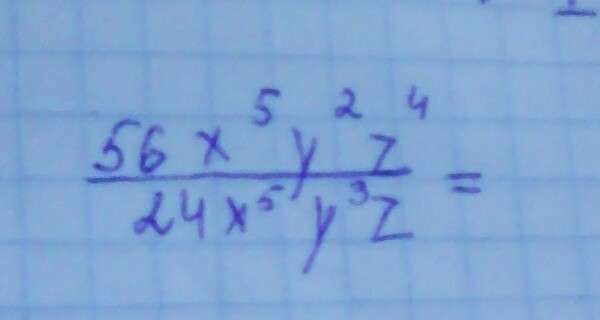 56 x⁵ y² z⁴
24 x⁵ y³ z =